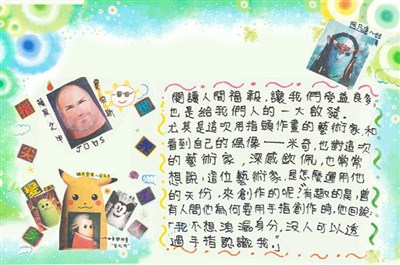 閱讀人間福報,讓我們受益良多,
也是給我們人的一大啟發。
尤其是這次用指頭作畫的藝術家,和
看到自己的偶像——米奇,也對這次
的藝術家,深感欽佩,也常常
想說,這位藝術家,是怎麼運用他
的天份,來創作的呢?有趣的是,曾
有人問他為何要用手指創作時,他回說:
「我不想洩漏身分,沒人可以透
過手指認識我。」
JOBS